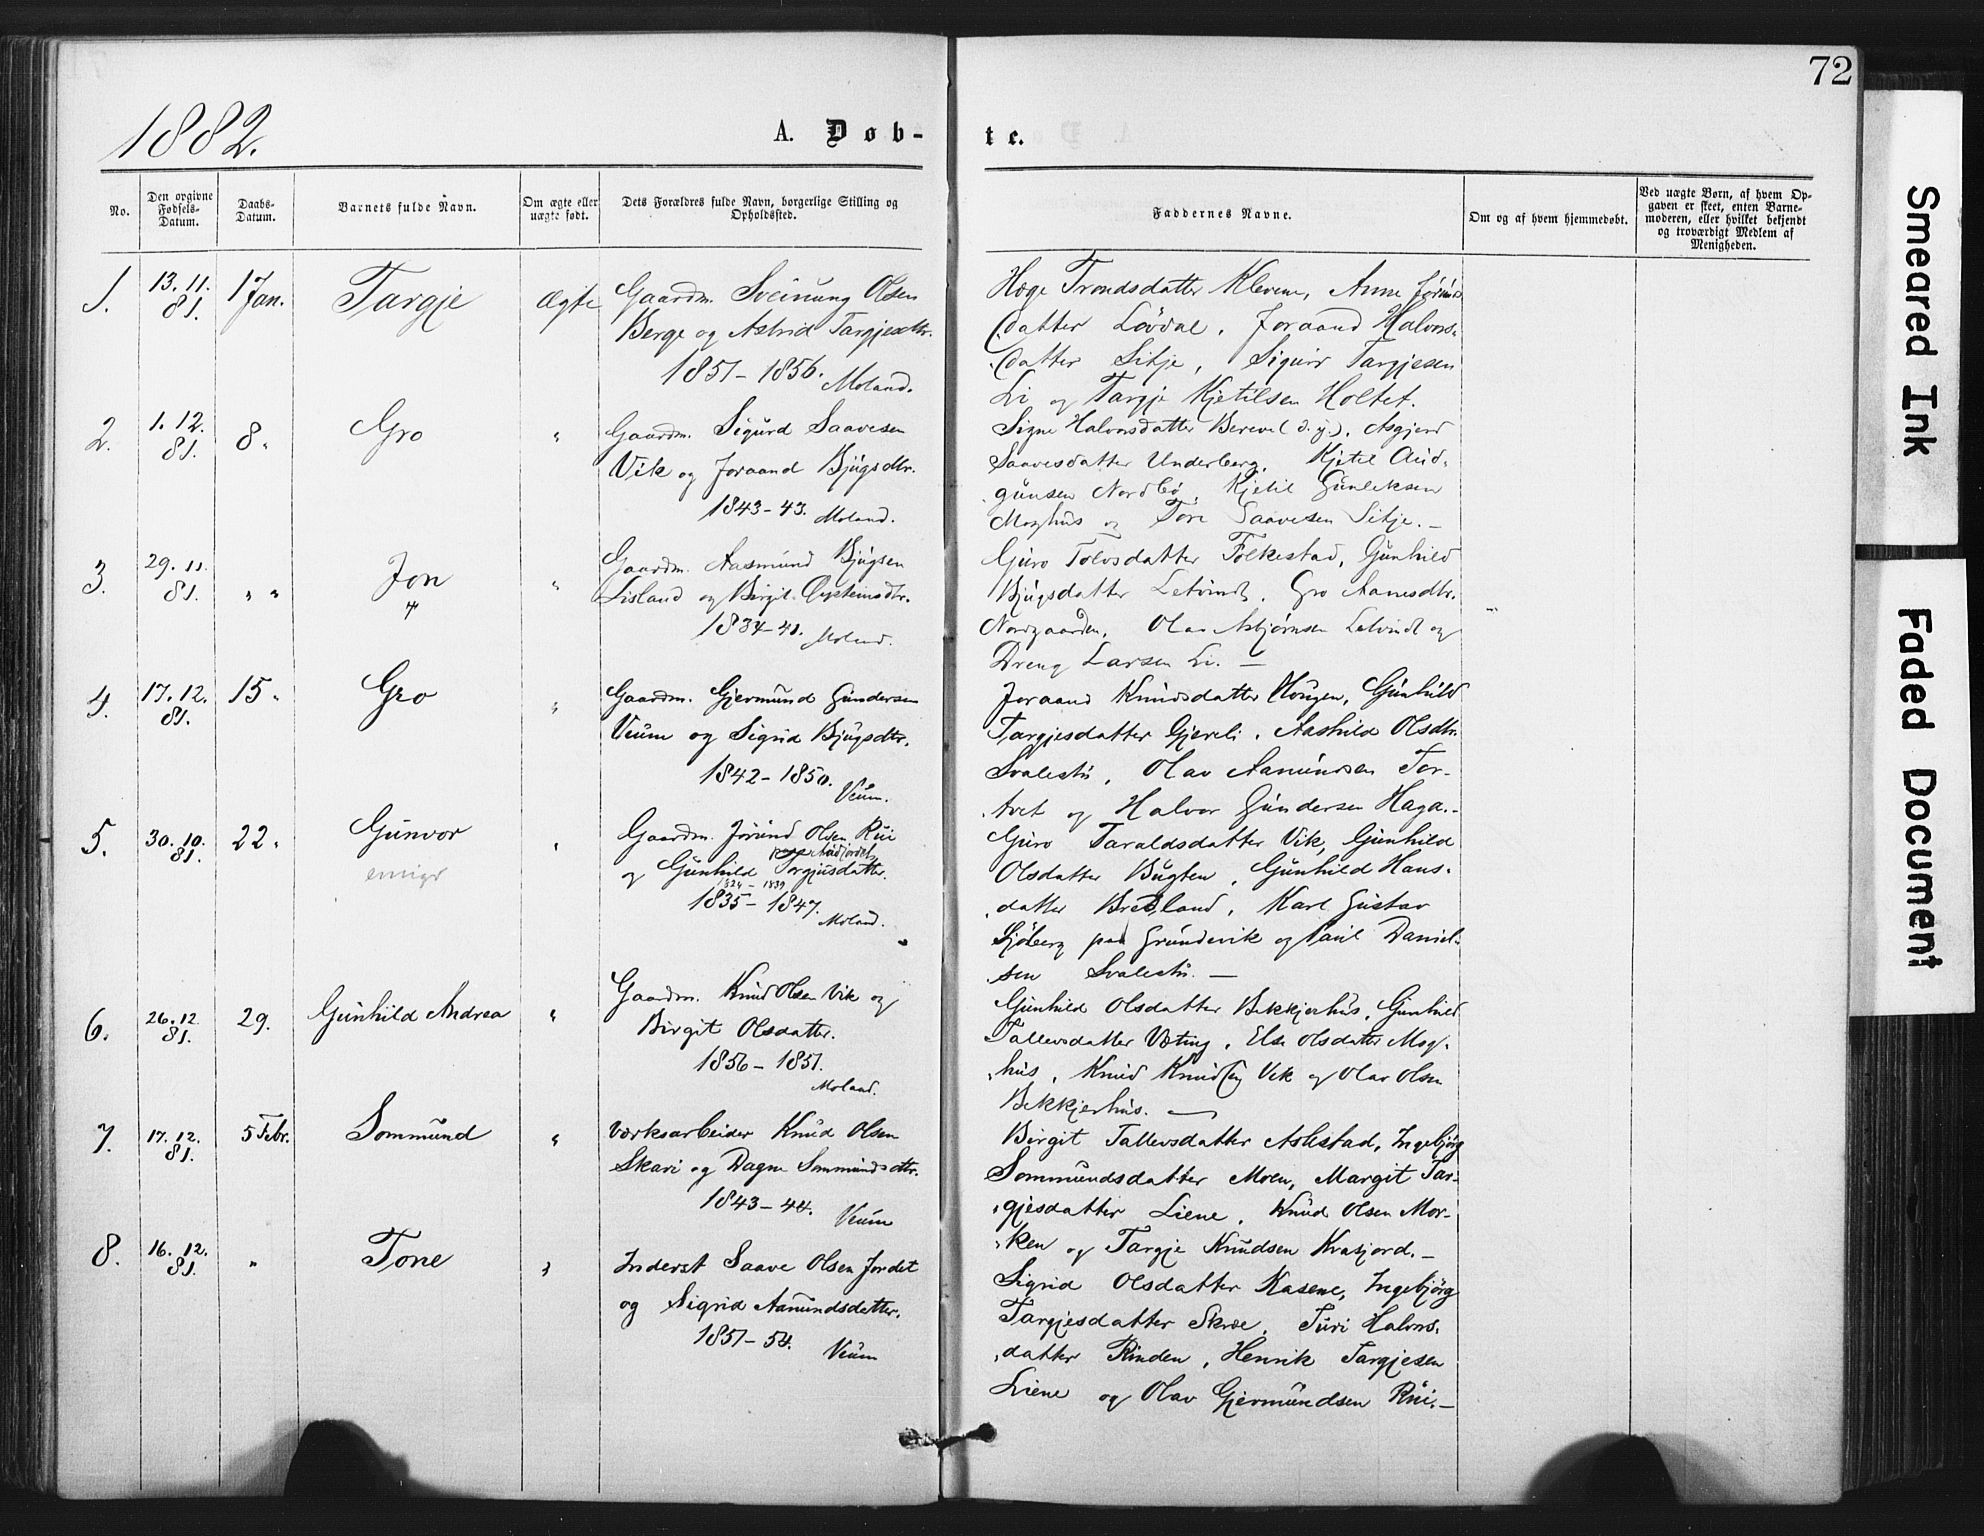 72
1882.
A. Døb-
te.
No.
Den opgivne Fødsels-Datum.
Daabs-Datum.
Barnets fulde Navn.
Om ægte eller uægte født.
Dets Forældres fulde Navn, borgerlige Stilling og Opholdssted.
Faddernes Navne.
Om og af hvem hjemmedøbt.
Ved uægte Børn, af hvem Opgaven er skeet, enten Barnemoderen, eller hvilket bekjendt og troværdigt Medlem af Menigheden.
1. 13. 11. 81. 1 Jan. Targje ægte
Gaardm. Sveinung Olsen
Berge og Astrid Targjesdtr.
1851 - 1856. Moland.
Hæge Trondsdatter Klevene, Anne
datter Lövdal, Joraand Halvors-
datter Sitje, Sigurd Targjesen
Li og Targje Kjetilsen Holtet.
2. 1. 12. 81. 8 " Gro "
Gaardm. Sigurd Saavesen
Vik og Joraand Bjügsdtr.
1843 - 43. Moland.
Signe Halvorsdatter Bereve (d. y.), Asgjerd
Saavesdatter Underberg, Kjetil Aud-
gunsen Nordbö, Kjetil Gunleksen
Moghus og Tore Saavesen Sitje. -
3. 29. 11. 81. " " Jon "
Gaardm. Aasmund Bjügsen
Lisland og Birgit Øysteinsdtr.
1834 - 41. Moland.
Guro Tolvsdatter Folkestad, Gunhild
Bjügsdatter Letvindt, Gro Aanesdtr.
Nordgaarden, Olav Asbjørnsen Letvindt og
Dreng Larsen Li. -
4. 17. 12. 81. 15 " Gro "
Gaardm. Gjermund Gundersen
Veum og Sigrid Bjügsdtr.
1842 - 1850. Veum.
Joraand Knudsdatter Hougen, Gunhild
Targjesdatter Gjereli, Aashild Olsdtr.
Svalestu, Olav Aamundsen Tor-
tvet og Halvor Gundersen Haga. -
5. 30. 10. 81. 22 " Gunvor "
emigr
Gaardm. Jörund Olsen Rui
og Gunhild Torgjusdatter.
1824 - 1839
1835 - 1847. Moland.
Guro Taraldsdatter Vik, Gunhild
Olsdatter Bugten, Gunhild Hans-
datter Bredland, Karl Gustav
Sjöberg paa Grundevik og Paul Daniel-
sen Svalestu. -
6. 26. 12. 81. 29. Gunhild Andrea "
Gaardm. Knud Olsen Vik og
Birgit Olsdatter.
1856 - 1851.
Moland.
Gunhild Olsdatter Bekkjerhus, Gunhild
Tallevsdatter Væting, Else Olsdatter Mog-
hus, Knud Knudsen Vik og Olav Olsen
Bekkjerhus. -
7. 17. 12. 81. 5 Febr. Sommund "
Værksarbeider Knud Olsen
Skavi og Dagne Sommundsdtr.
1843 - 44. Veum
Birgit Tallevsdatter Askestad, Ingebjörg
Sommundsdatter Moen, Margit Tar-
gjesdatter Liene, Knud Olsen Mor-
ken og Targje Knudsen Kvasjord. -
8. 16. 12. 81. " Tone "
Inderst Saave Olsen Jordet
og Sigrid Aamundsdatter.
1851 - 54. Veum
Sigrid Olsdatter Kasene, Ingebjörg
Targjesdatter Skræ, Turi Halvors-
datter Rinden, Henrik Targjesen
Liene og Olav Gjermundsen Rui. -
Smeared Ink
Faded Document